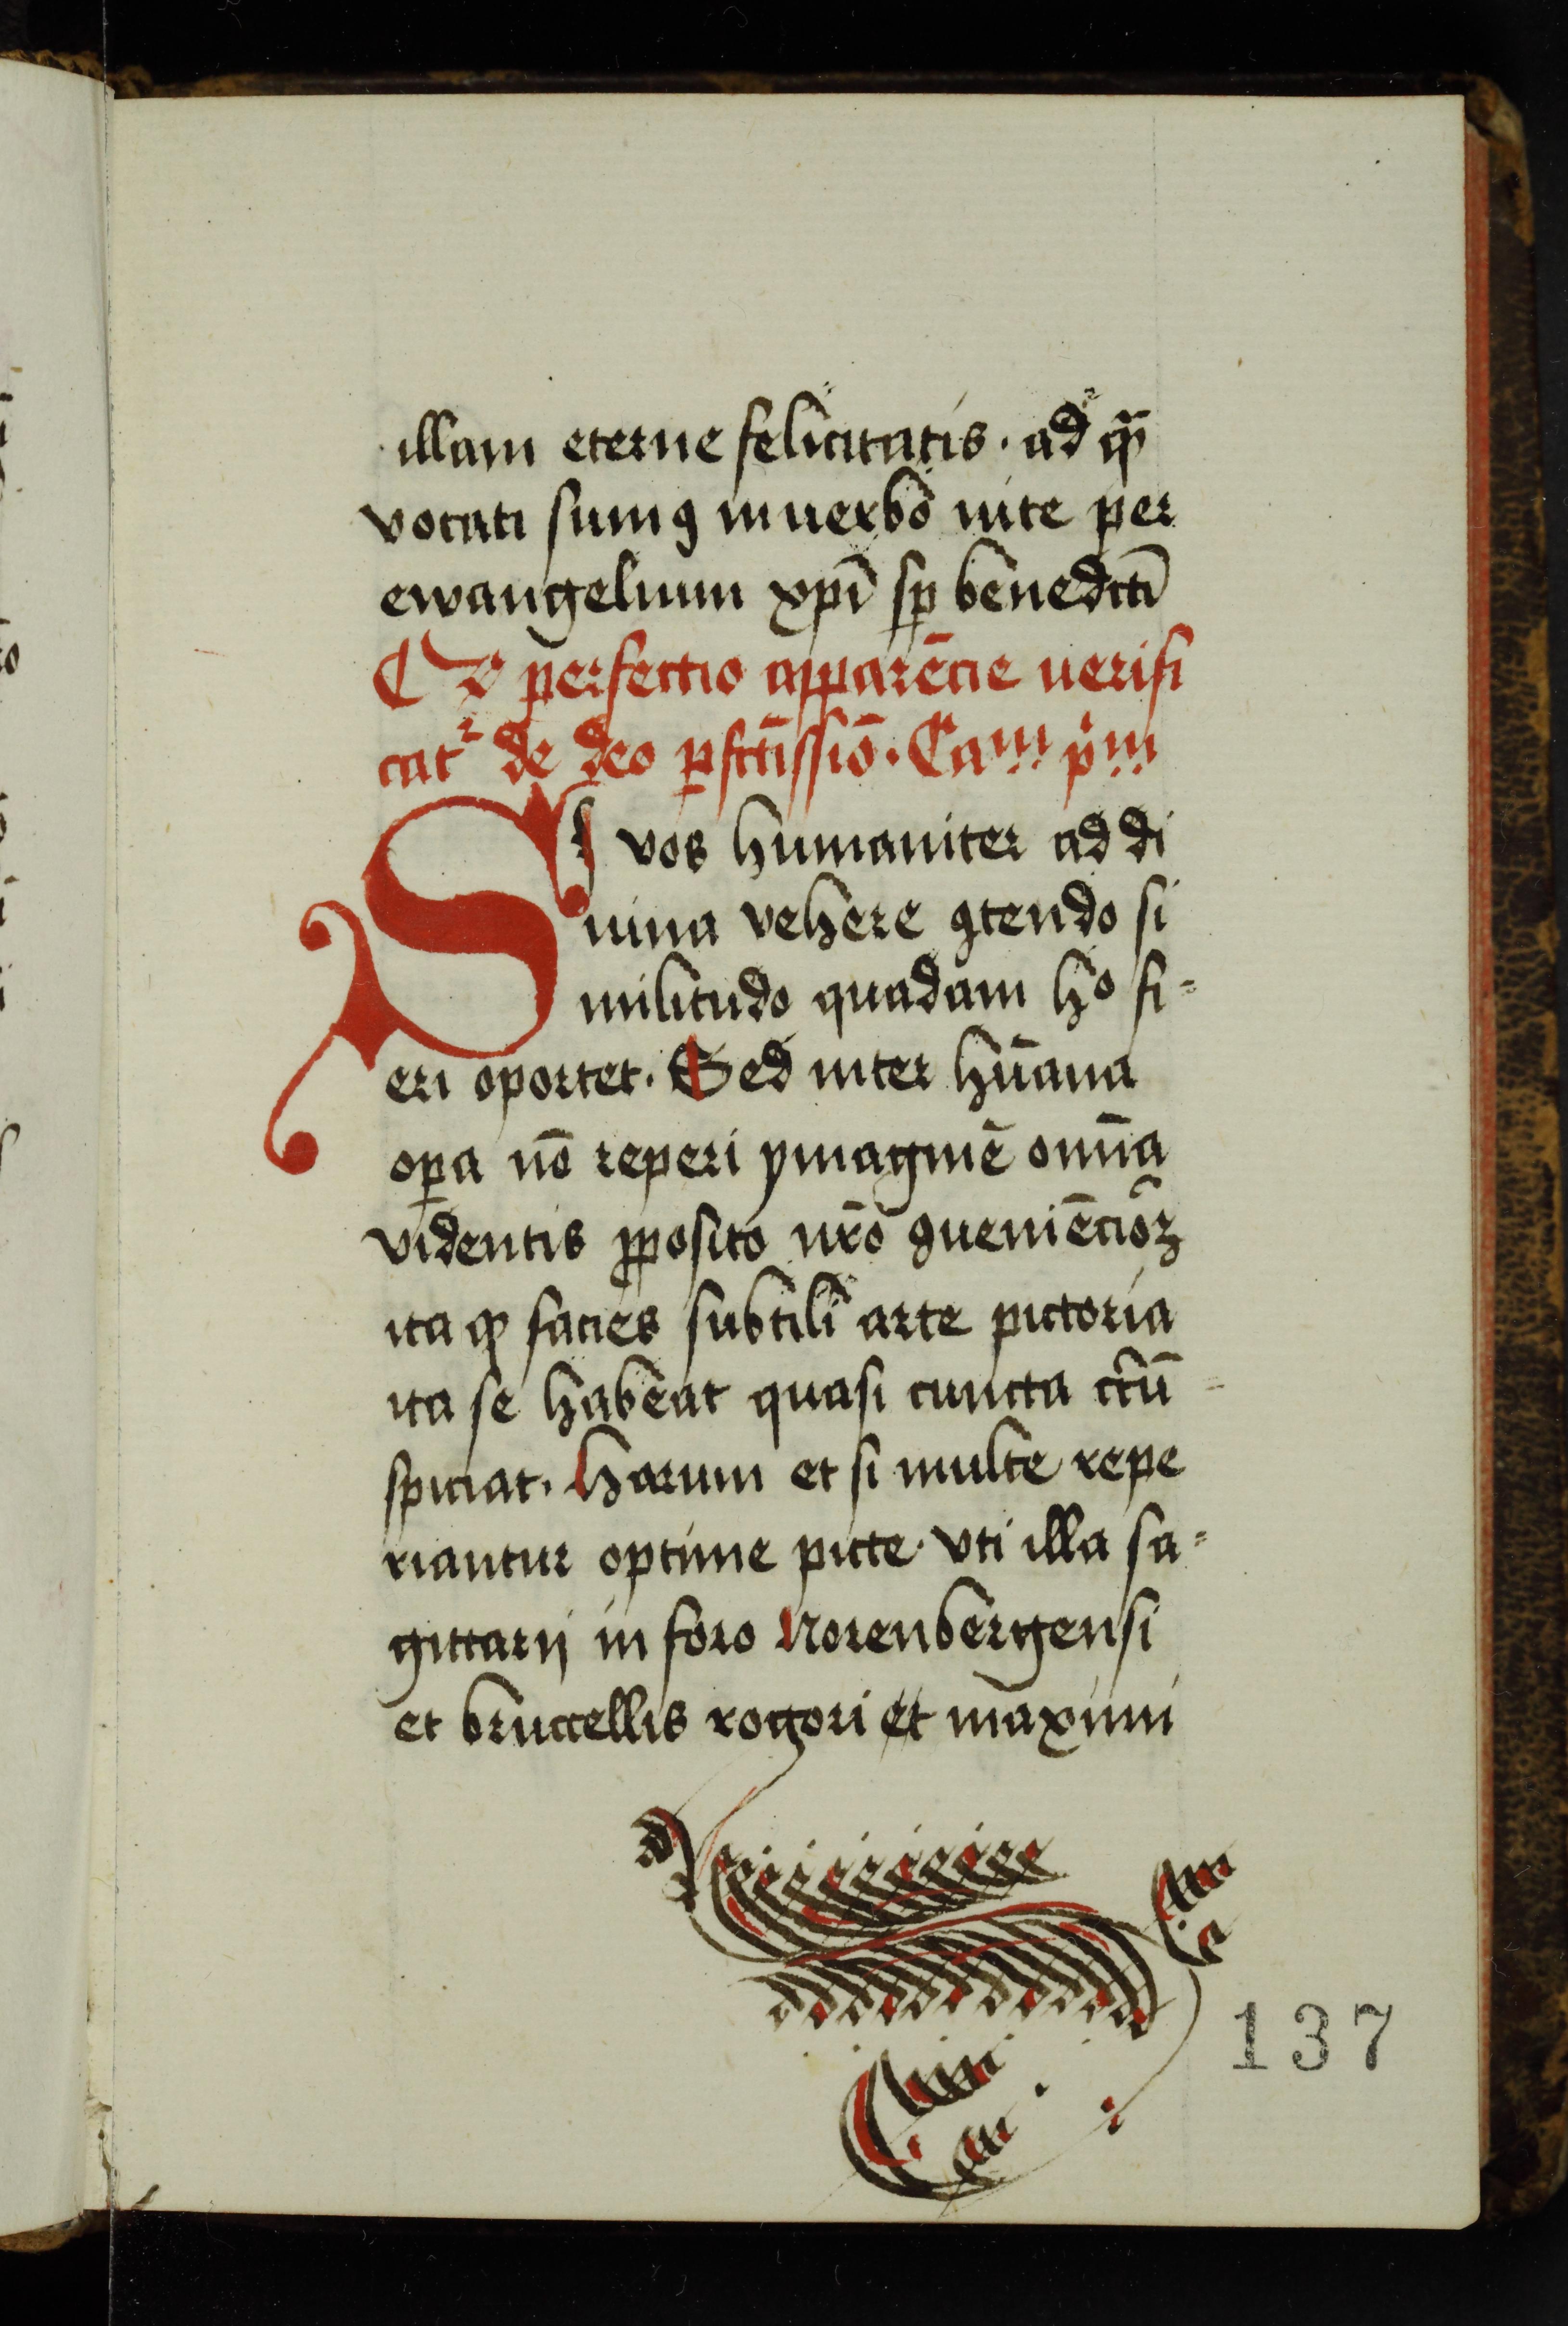 illam eterne felicitatis · ad q̄ꝫ
vocati sumꝯ in uerbo uite per
ewangelium xp̄i sꝑ benedctī
¶ ꝙ perfectio apparēcie uerifi
catᷣ de deo ꝑfctīssiō · Ca''' p'''
Si vos humaniter ad di
uina vehere ꝯtendo si
militudo quadam hͦ fi⸗
eri oportet · Sed inter hūana
oꝑa nō reperi ymaginē omīa
videntis ꝓposito nr̄o ꝯueniēcioꝝ
ita ꝙ facies subtili arte pictoria
ita se habeat quasi cuncta cr̄cū⸗
spiciat · Harum et si multe repe
riantur optime picte · vti illa sa⸗
gittarij in foro Norenbergensi
et bruccellis rogori et maximi
137